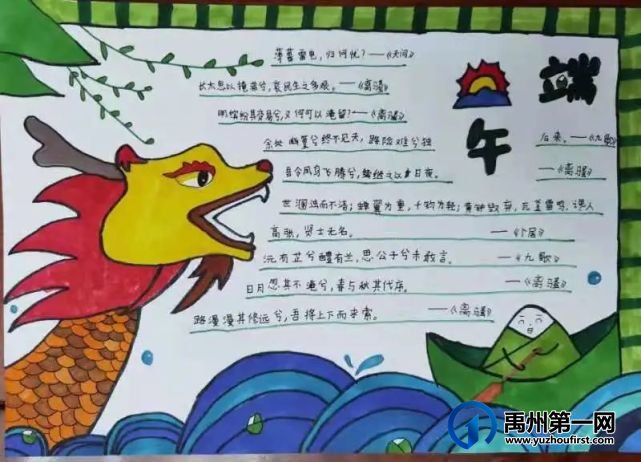 端午
薄暮雷电，归何忧？——《天问》
长太息以掩涕兮，哀民生之多艰。——《离骚》
时缤纷其变易兮，又何可以淹留？——《离骚》
余处幽篁兮终不见天，路险难兮独
后来。——《九歌》
吾令凤鸟飞腾兮，继之以日夜。
——《离骚》
世溷浊而不清；蝉翼为重，千钧为轻；黄钟毁弃，瓦釜雷鸣；谗人
高张，贤士无名。——《卜居》
沅有芷兮醴有兰，思公子兮未敢言。——《九歌》
日月忽其不淹兮，春与秋其代序。——《离骚》
路漫漫其修远兮，吾将上下而求索。——《离骚》
禹州第一网
www.yuzhoufirst.com